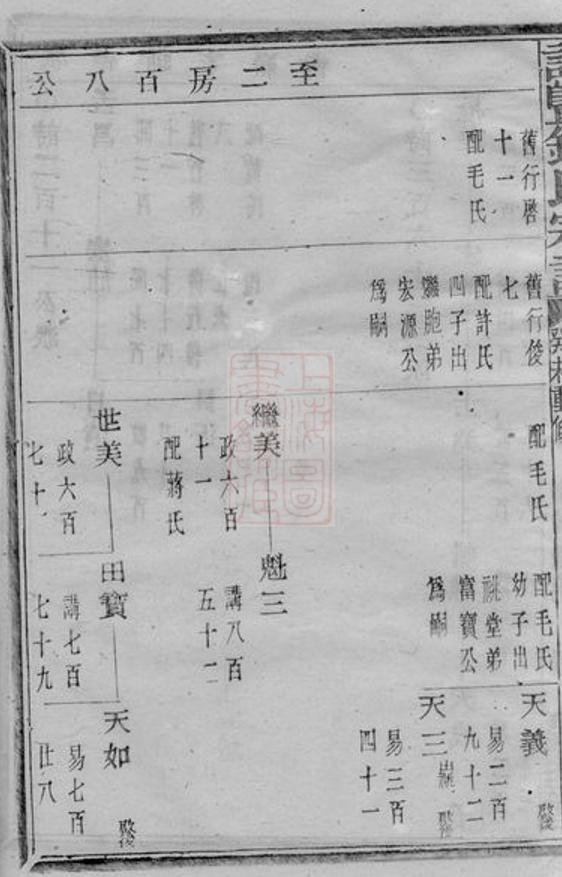 至二房百八公
舊行啓
十一
配毛氏
舊行俊
七
配許氏
四子出
繼胞弟
宏源公
爲嗣
配毛氏
繼美
政六百
十一
配蔣氏
世美
政六百
七十一
配毛氏
幼子出
祧堂弟
富寶公
爲嗣
魁三
講八百
五十二
田寶
講七百
七十九
天義
易二百
九十二
天三
易三百
四十一
天如
易七百
廿八